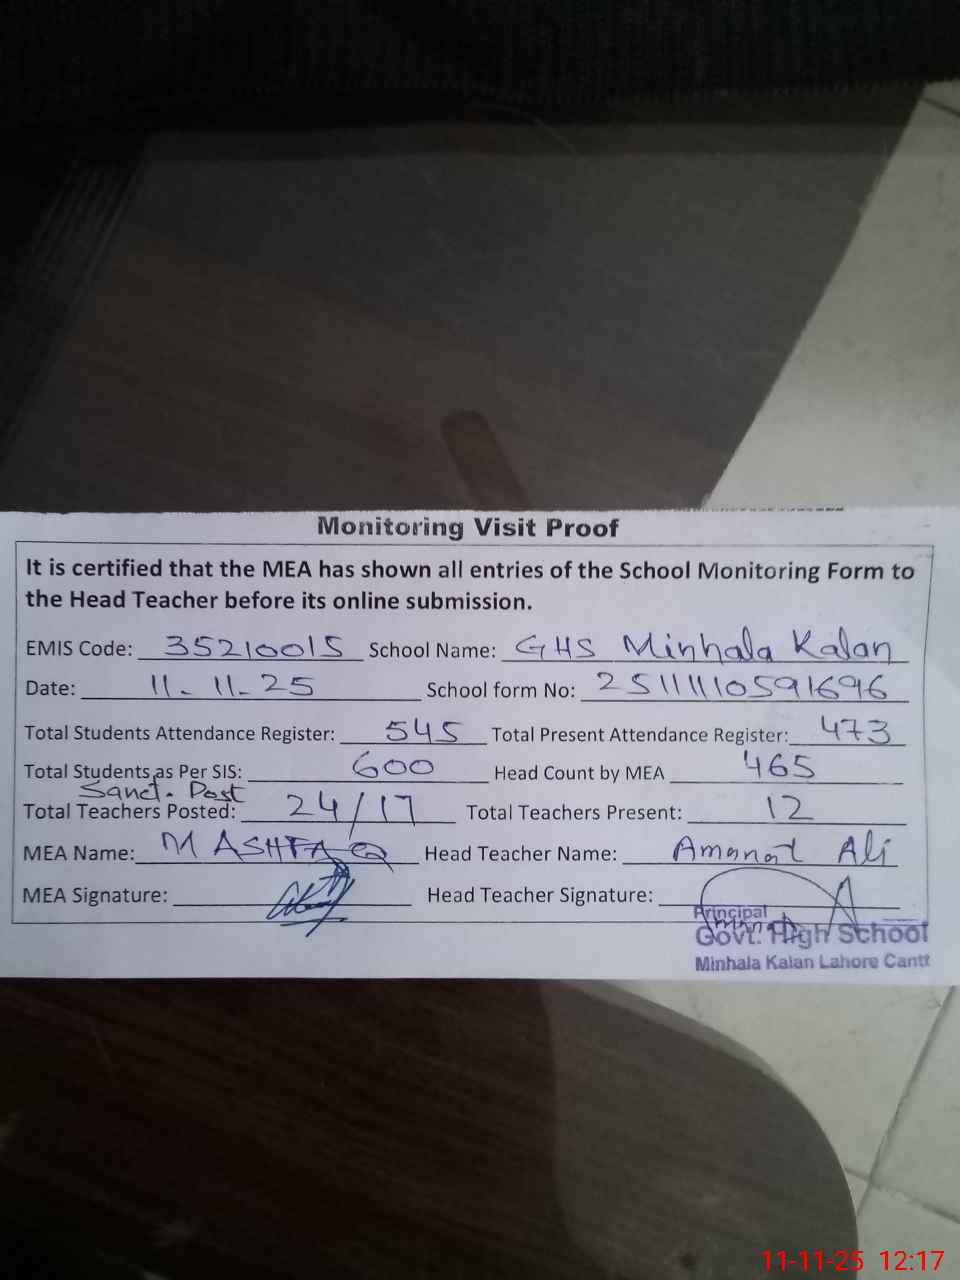 Monitoring Visit Proof
It is certified that the MEA has shown all entries of the School Monitoring Form to
the Head Teacher before its online submission.
EMIS Code: 35210015 School Name: GHS Minhala Kalan
Date: 11-11-25 School form No: 25111110591696
Total Students Attendance Register: 545 Total Present Attendance Register: 473
Total Students as Per SIS: 600 Head Count by MEA 465
Sanct. Post
Total Teachers Posted: 24/17 Total Teachers Present: 12
MEA Name: M ASHFAQ Head Teacher Name: Amanat Ali
MEA Signature: Head Teacher Signature:
Principal
Govt. High School
Minhala Kalan Lahore Cantt
11-11-25 12:17